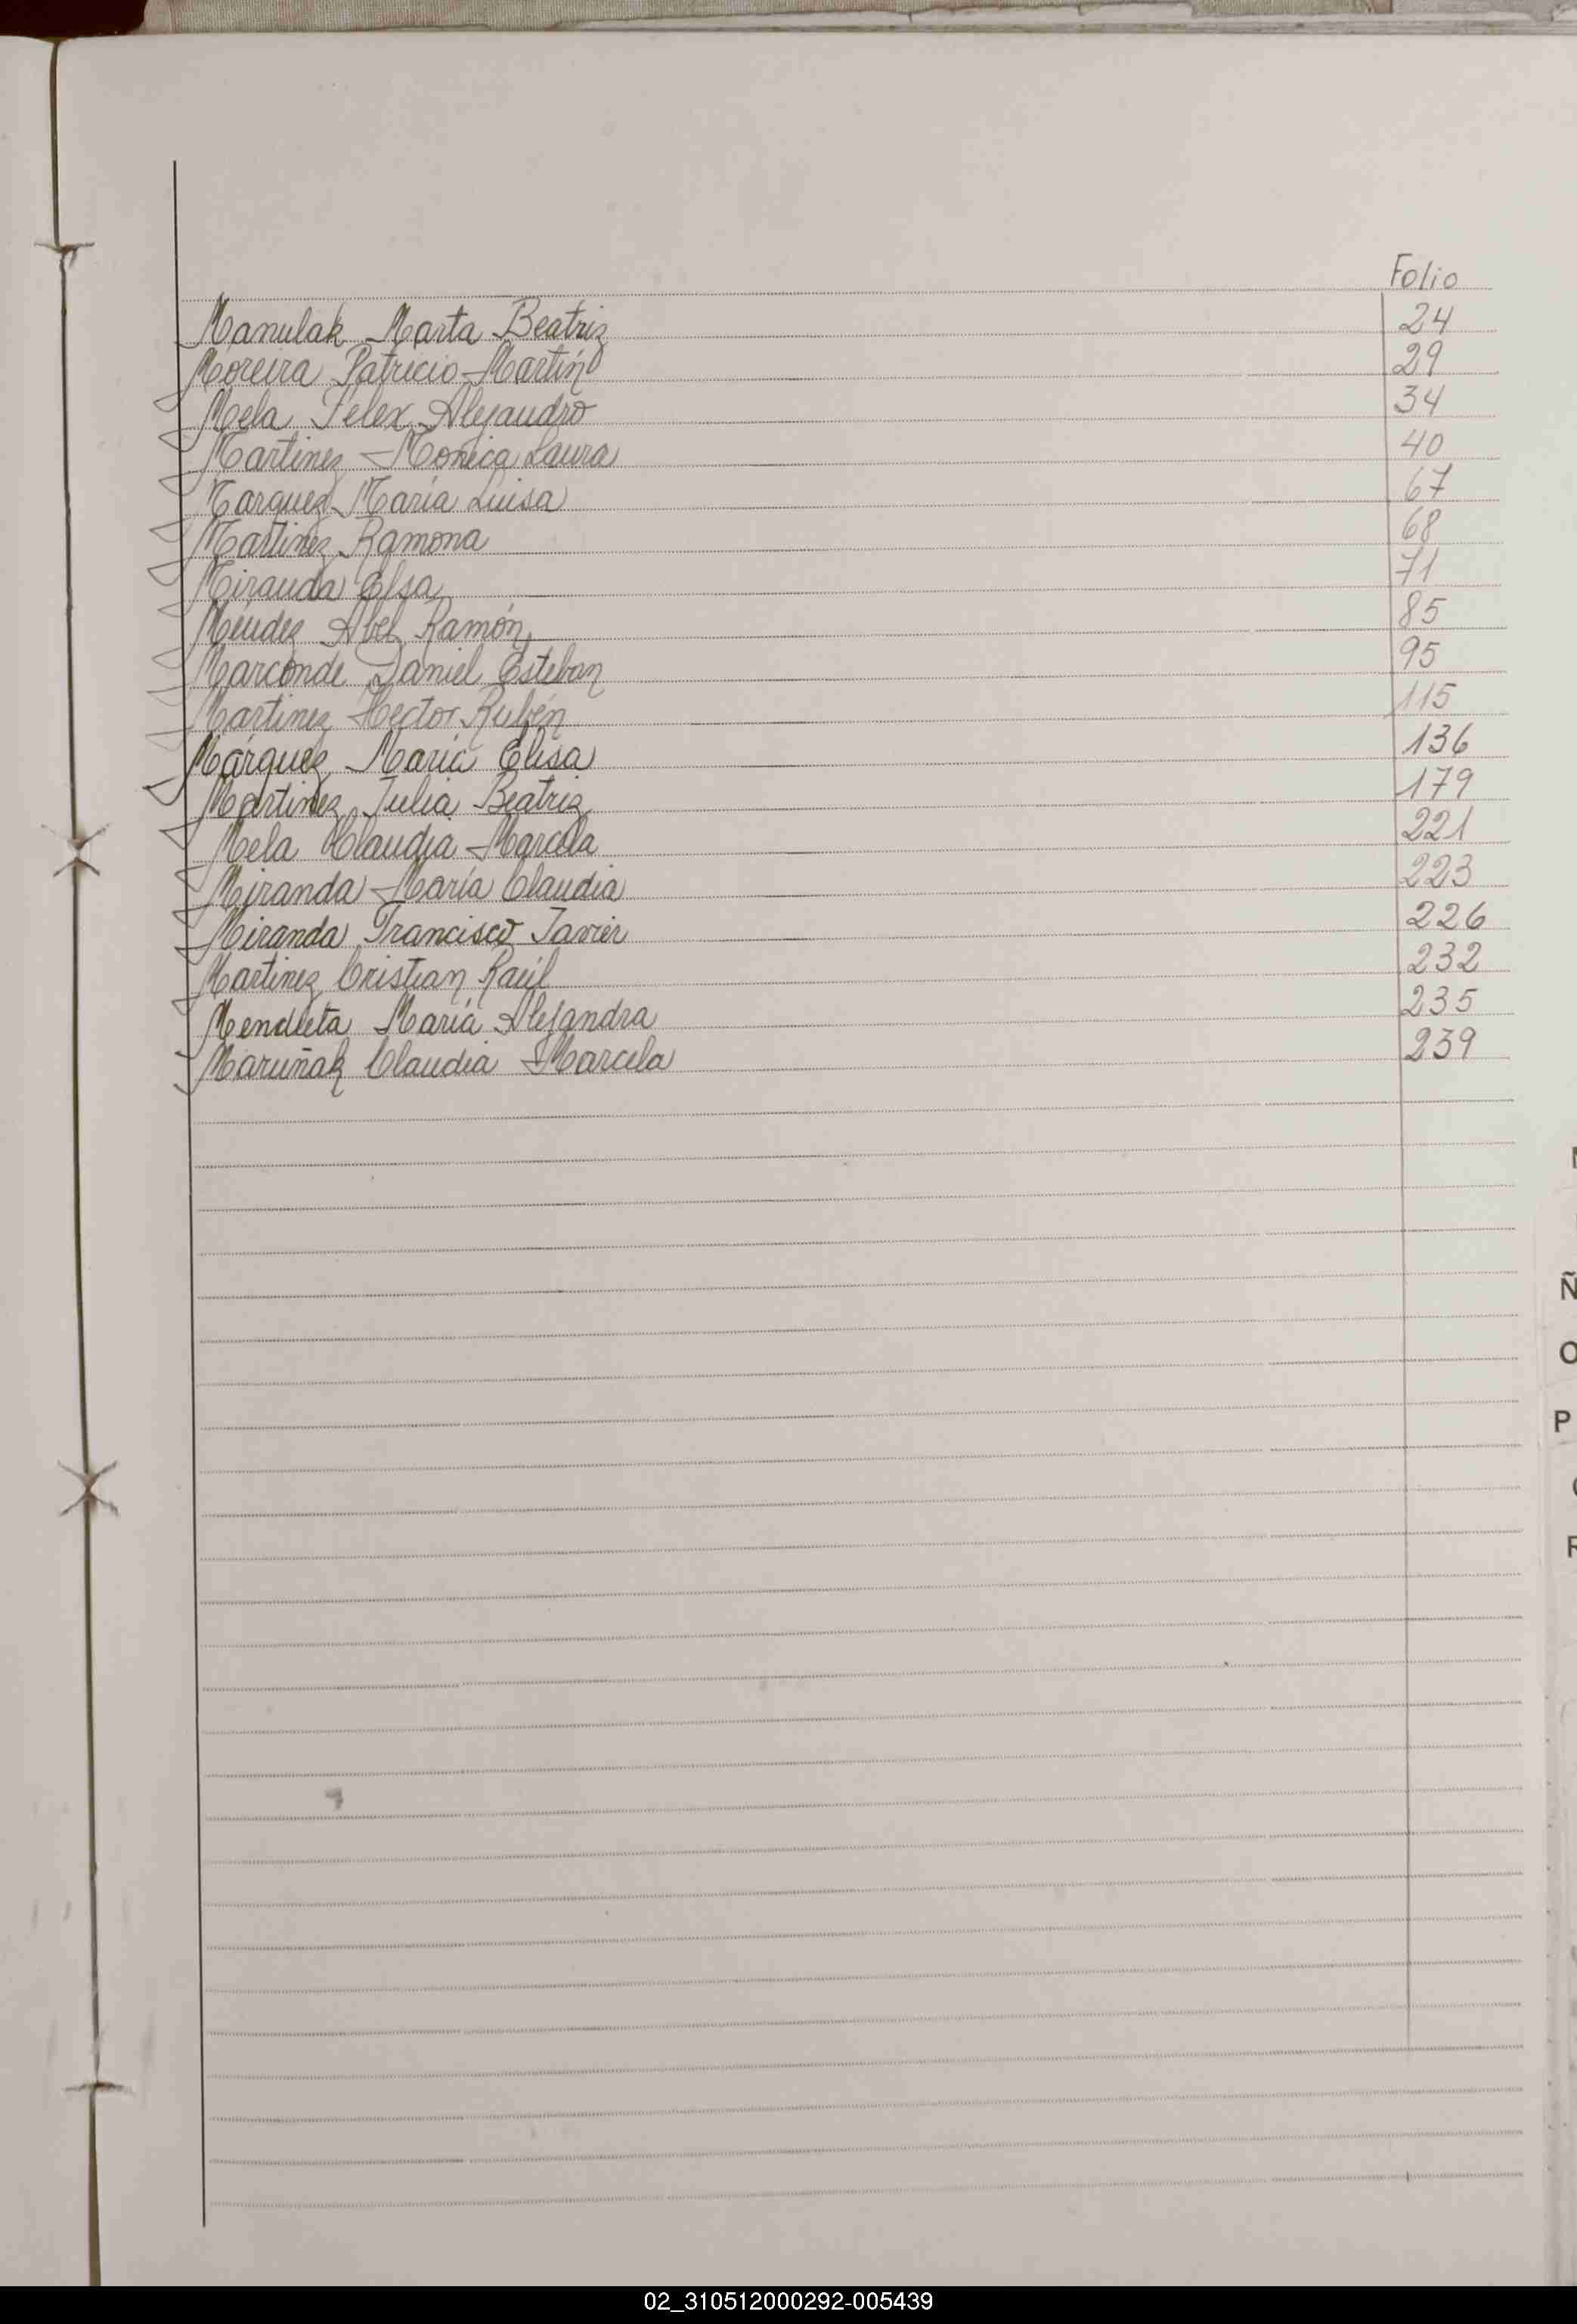 Folio
Manulak Marta Beatriz 24
Moreira Patricio Martín 29
Mela Felex Alejandro 34
Martinez Monica Laura 40
Marquez María Luisa 67
Martinez Ramona 68
Miranda Elsa 71
Méndez Abel Ramón 85
Marconde Daniel Esteban 95
Martinez Hector Rubén 115
Márquez María Elisa 136
Martinez Julia Beatriz 179
Mela Claudia Marcela 221
Miranda María Claudia 223
Miranda Francisco Javier 226
Martinez Cristian Raúl 232
Mendieta María Alejandra 235
Maruñak Claudia Marcela 239
Ñ
O
P
R
02_310512000292-005439